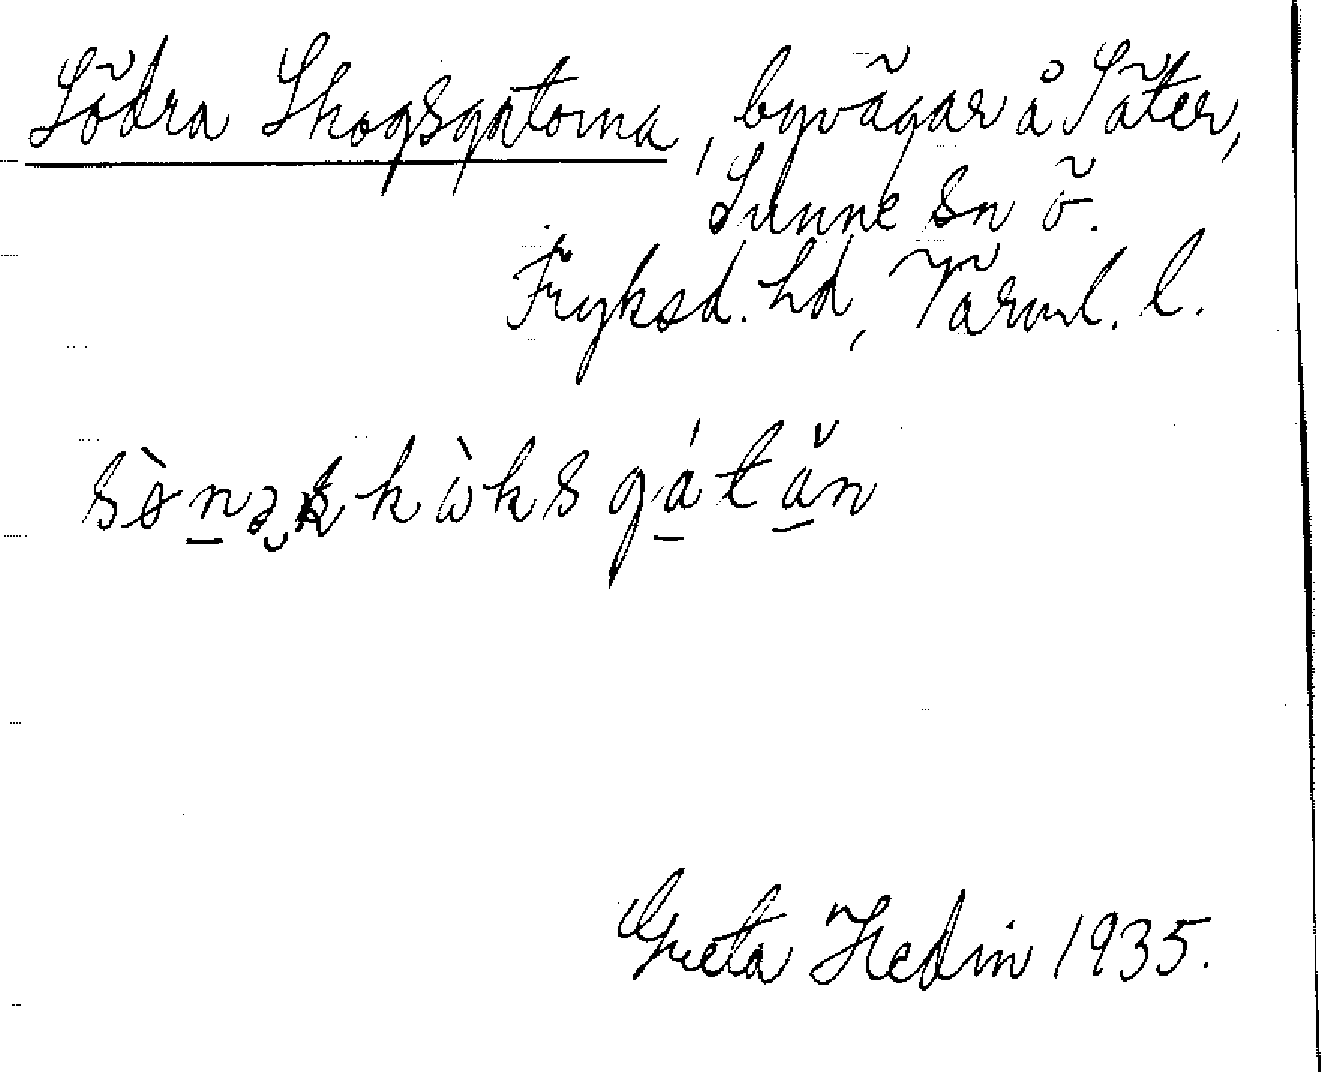 Södra Skogsgatorna, byvägar å Säter,
Sunne sn ö.
Fryksd. hd, Värml. l.
Greta Hedin 1935.